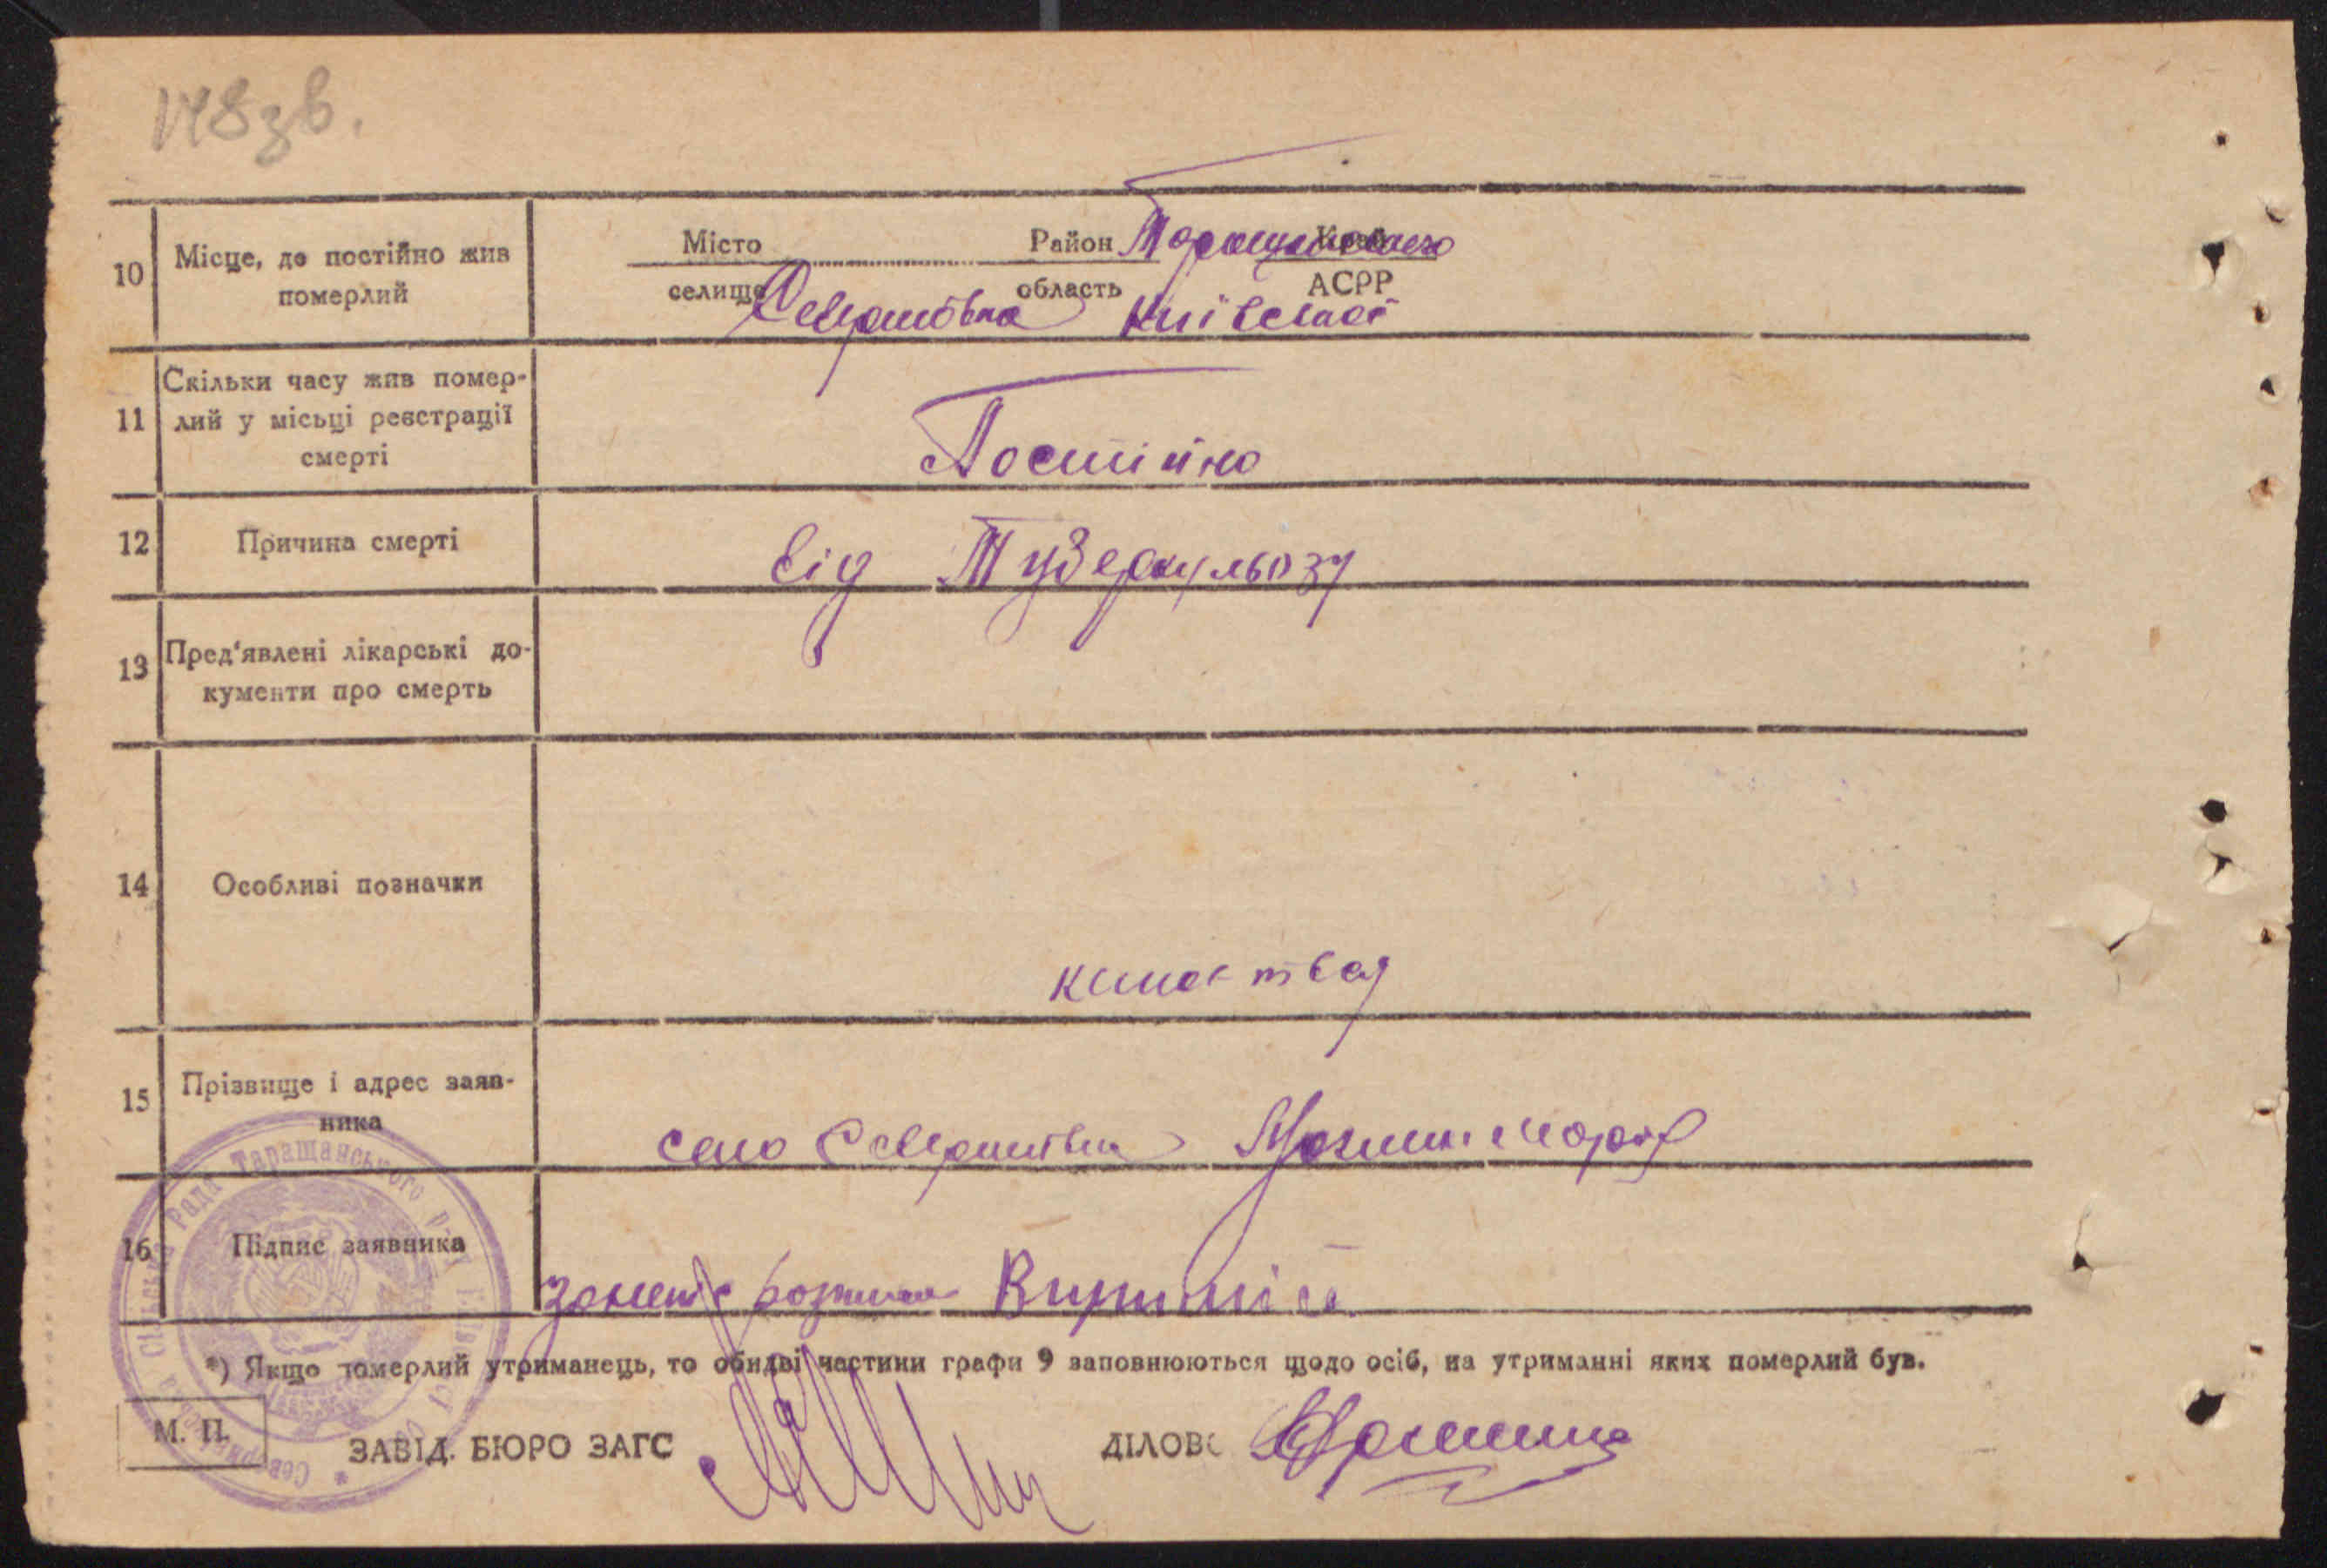 148 зв.
10 Місце, де постійно жив померлий
Місто Район Таращанского Край
селище Северинівка область Київської АСРР
11 Скільки часу жив помер-
лий у місьці реєстрації
смерті
Постійно
12 Причина смерті
від Туберкульозу
13 Пред'явлені лікарські до-
кументи про смерть
14 Особливі позначки
15 Прізвище і адрес заяв-
ника
село Северинівка
16 Підпис заявника
*) Якщо померлий утриманець, то обидві частини графи 9 заповнюються щодо осіб, на утриманні яких померлий був.
М. П.
ЗАВІД. БЮРО ЗАГС
ДІЛОВ
Сільська Рада Таращанського